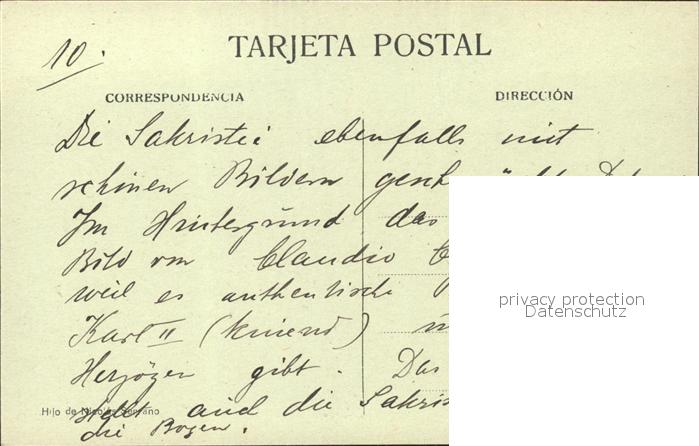 10.
TARJETA POSTAL
CORRESPONDENCIA
DIRECCIÓN
Die Sakristei ebenfalls mit
schönen Bildern gesch
Im Hintergrund das
Bild von Claudio C
weil es authentische
Karl II (kniend)
Herzögen gibt. Das
sieht auch die Sakris
die Bogen.
Hijo de Nicolás Serrano
privacy protection
Datenschutz